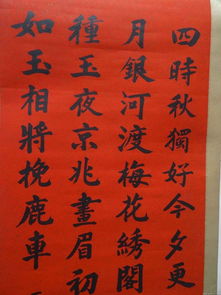 四時秋獨好今夕更
月銀河渡梅花綉閣
種玉夜京兆畫眉初
如玉相將挽鹿車